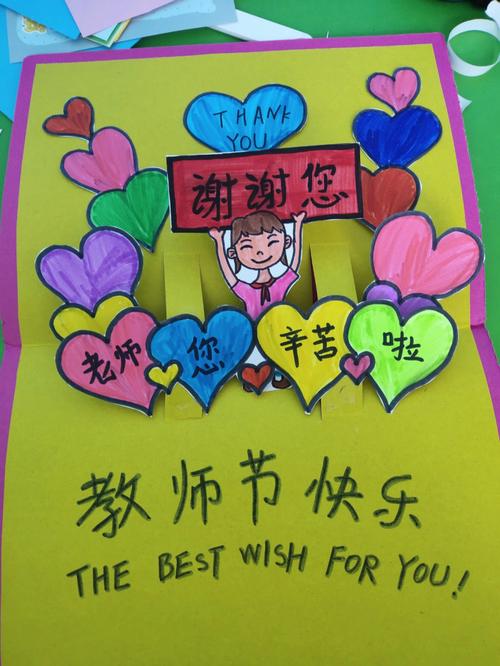 THANK
YOU
谢谢您
老师 您 辛苦 啦
教师节快乐
THE BEST WISH FOR YOU!